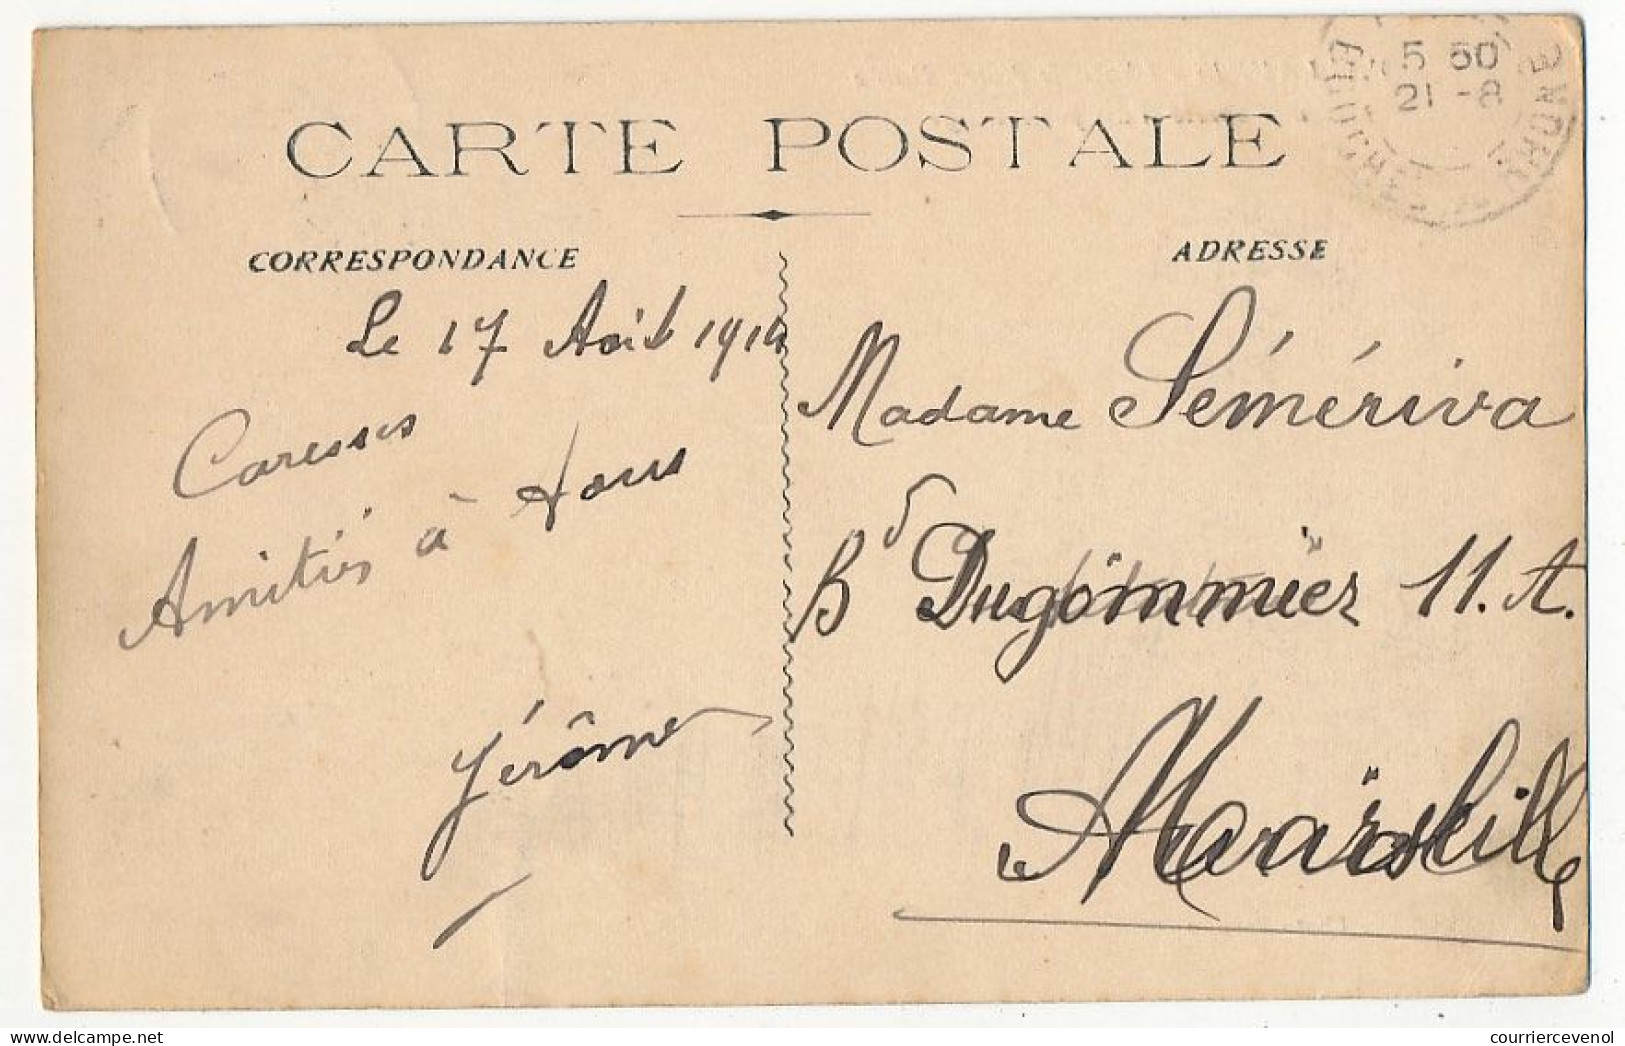 CARTE POSTALE
CORRESPONDANCE
ADRESSE
5 50
21 -8
BOUCHES RHONE
Le 17 Août 1914
Caresses
Amitiés à tous
Jérôme
Madame Sémériva
Bd Dugommier 11. A.
Marseille
courriercevenol